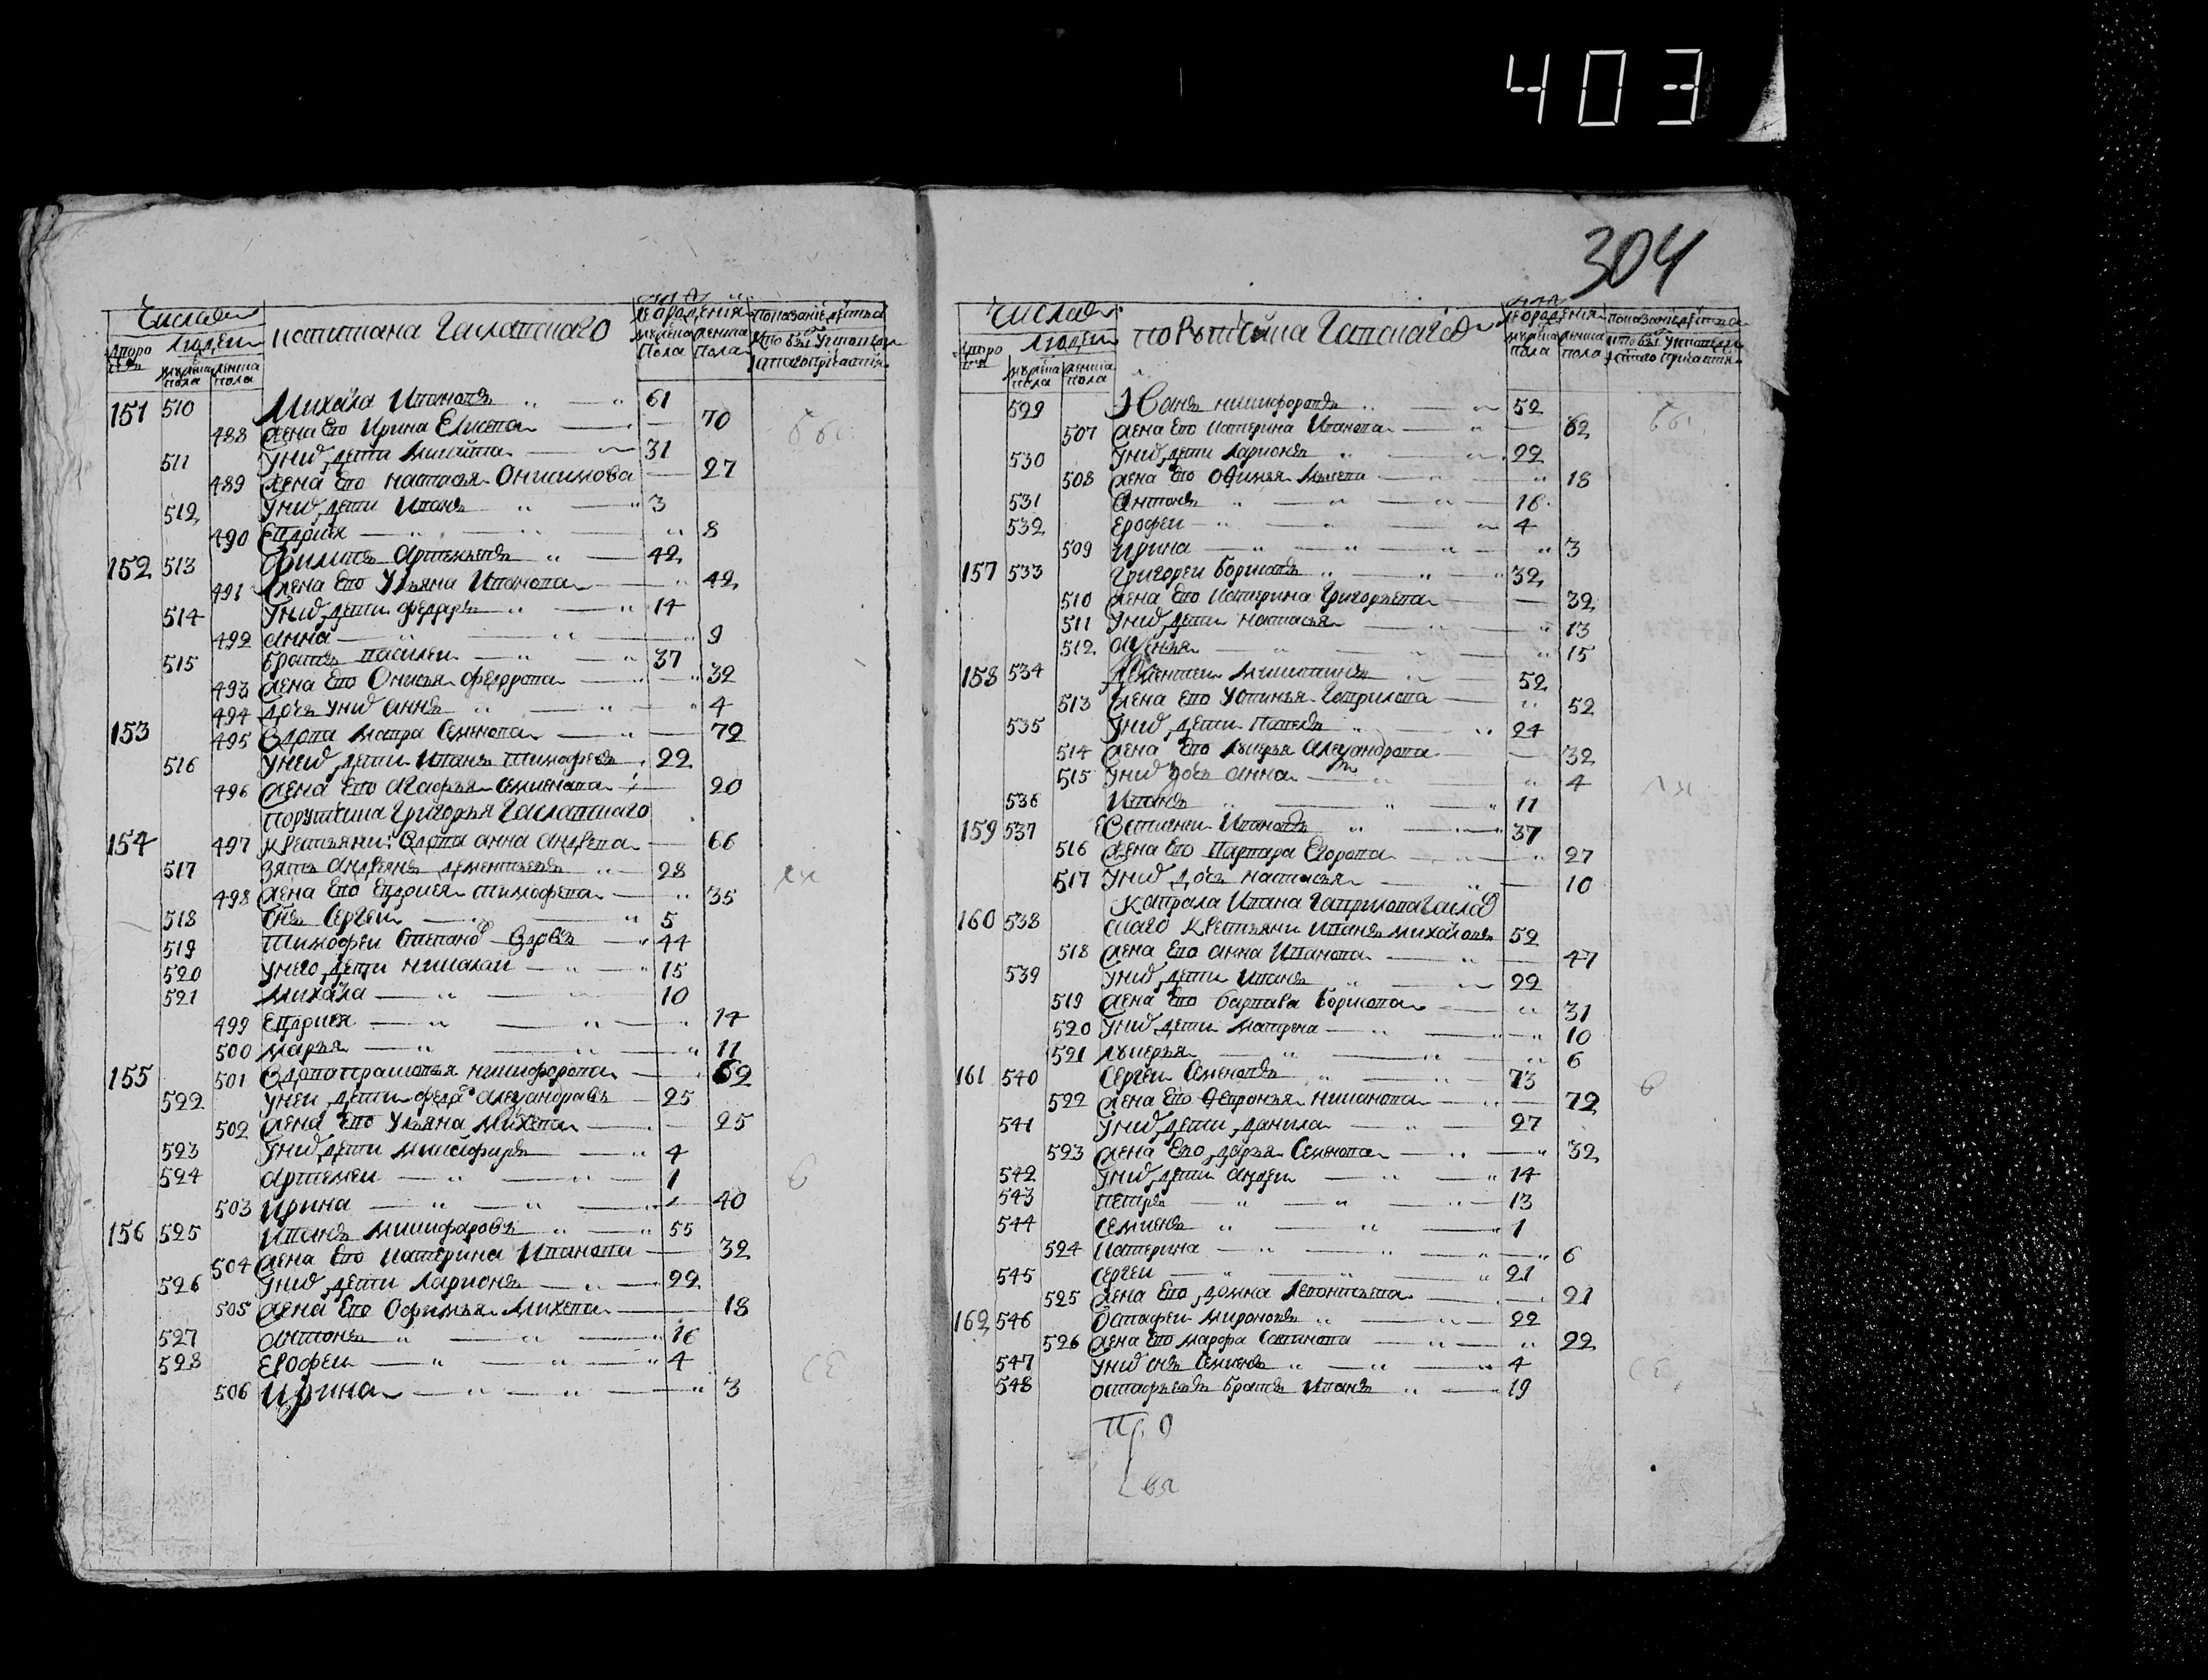 403
304
Число
людей
капитана Гаславскаго
лета от рождения
показание действа
дворов
мужеска пола
женска пола
мужеска пола
женска пола
кто был у исповеди и святаго причастия
151 510 Михаила Иванов 61
488 жена ево Ирина Елисеева 70
511 У них дети Никита 31
489 жена ево настасья Онисимова 27
512 У них дети Иван 3
490 Евдокия 8
152 513 Филипъ Артемьевъ 42
491 жена ево Ульяна Иванова 42
514 У них дети федоръ 14
492 анна 9
515 братъ василеи 37
493 жена ево Онисья федорова 32
494 дочь у них анна 4
153 495 Вдова матра Семенова 72
516 У неи дети Иванъ тимофеевъ 22
496 жена ево Агафья семионова 20
порутчика Григорья Гаславскаго
154 497 крестьяни: Вдова анна андреева 66
517 зять андреянъ дементьевъ 28
498 жена ево Евдокия тимофеева 35
518 Снъ Сергеи 5
519 тимофеи Степано Вдовъ 44
520 у него дети николаи 15
521 михаила 10
499 Евдокия 14
500 марья 11
155 501 Вдова прасковья никифорова 62
522 у неи дети федо алеѯандравъ 25
502 жена ево Ульяна Михева 25
523 У них дети никифоръ 4
524 артемеи 1
503 ирина 40
156 525 Иванъ никифаровъ 55
504 жена ево катерина Иванова 32
526 У них дети Ларионъ 22
505 жена ево Офимья Михева 18
527 антонъ 16
528 Ерофеи 4
506 Ирина 3
Число
людей
порутчика Гавскаго
лета от рождения
показание действа
дворов
мужеска пола
женска пола
мужеска пола
женска пола
кто был у исповеди и святаго причастия
529 Иванъ никифоровъ 52
507 жена ево катерина Иванова 62
530 У них дети Ларионъ 22
508 жена ево Офимья Михева 18
531 Антонъ 16
532 Ерофеи 4
509 Ирина 3
157 533 Григореи борисовъ 32
510 жена ево катерина Григорьева 32
511 У них дети настасья 13
512 15
158 534 Дементеи никитинъ 52
513 жена ево Устинья Гаврилова 52
535 У них дети Павелъ 24
514 жена ево лукерья алеѯандрова 32
515 У них дочь анна 4
536 Иванъ 11
159 537 Евстигнеи Ивановъ 37
516 жена ево Варвара Егорова 27
517 У них дочь настасья 10
капрала Ивана Гаврилова Гаслав
160 538 скаго крестьяни Иванъ михаиловъ 52
518 жена ево анна Иванова 47
539 У них дети Иванъ 22
519 жена ево варвава борисова 31
520 У них дети матрена 10
521 лукерья 6
161 540 Сергеи Семеновъ 73
522 жена ево Февронья никанова 72
541 У них дети данила 27
523 жена ево дарья Семенова 32
542 У них дети андреи 14
543 петръ 13
544 Семионъ 1
524 катерина 6
545 Сергеи 21
525 жена ево домна Леонтьева 21
162 546 Остафеи миронов 22
526 жена ево марфа Савинова 22
547 у них снъ Семионъ 4
548 остафьевъ братъ Иванъ 19